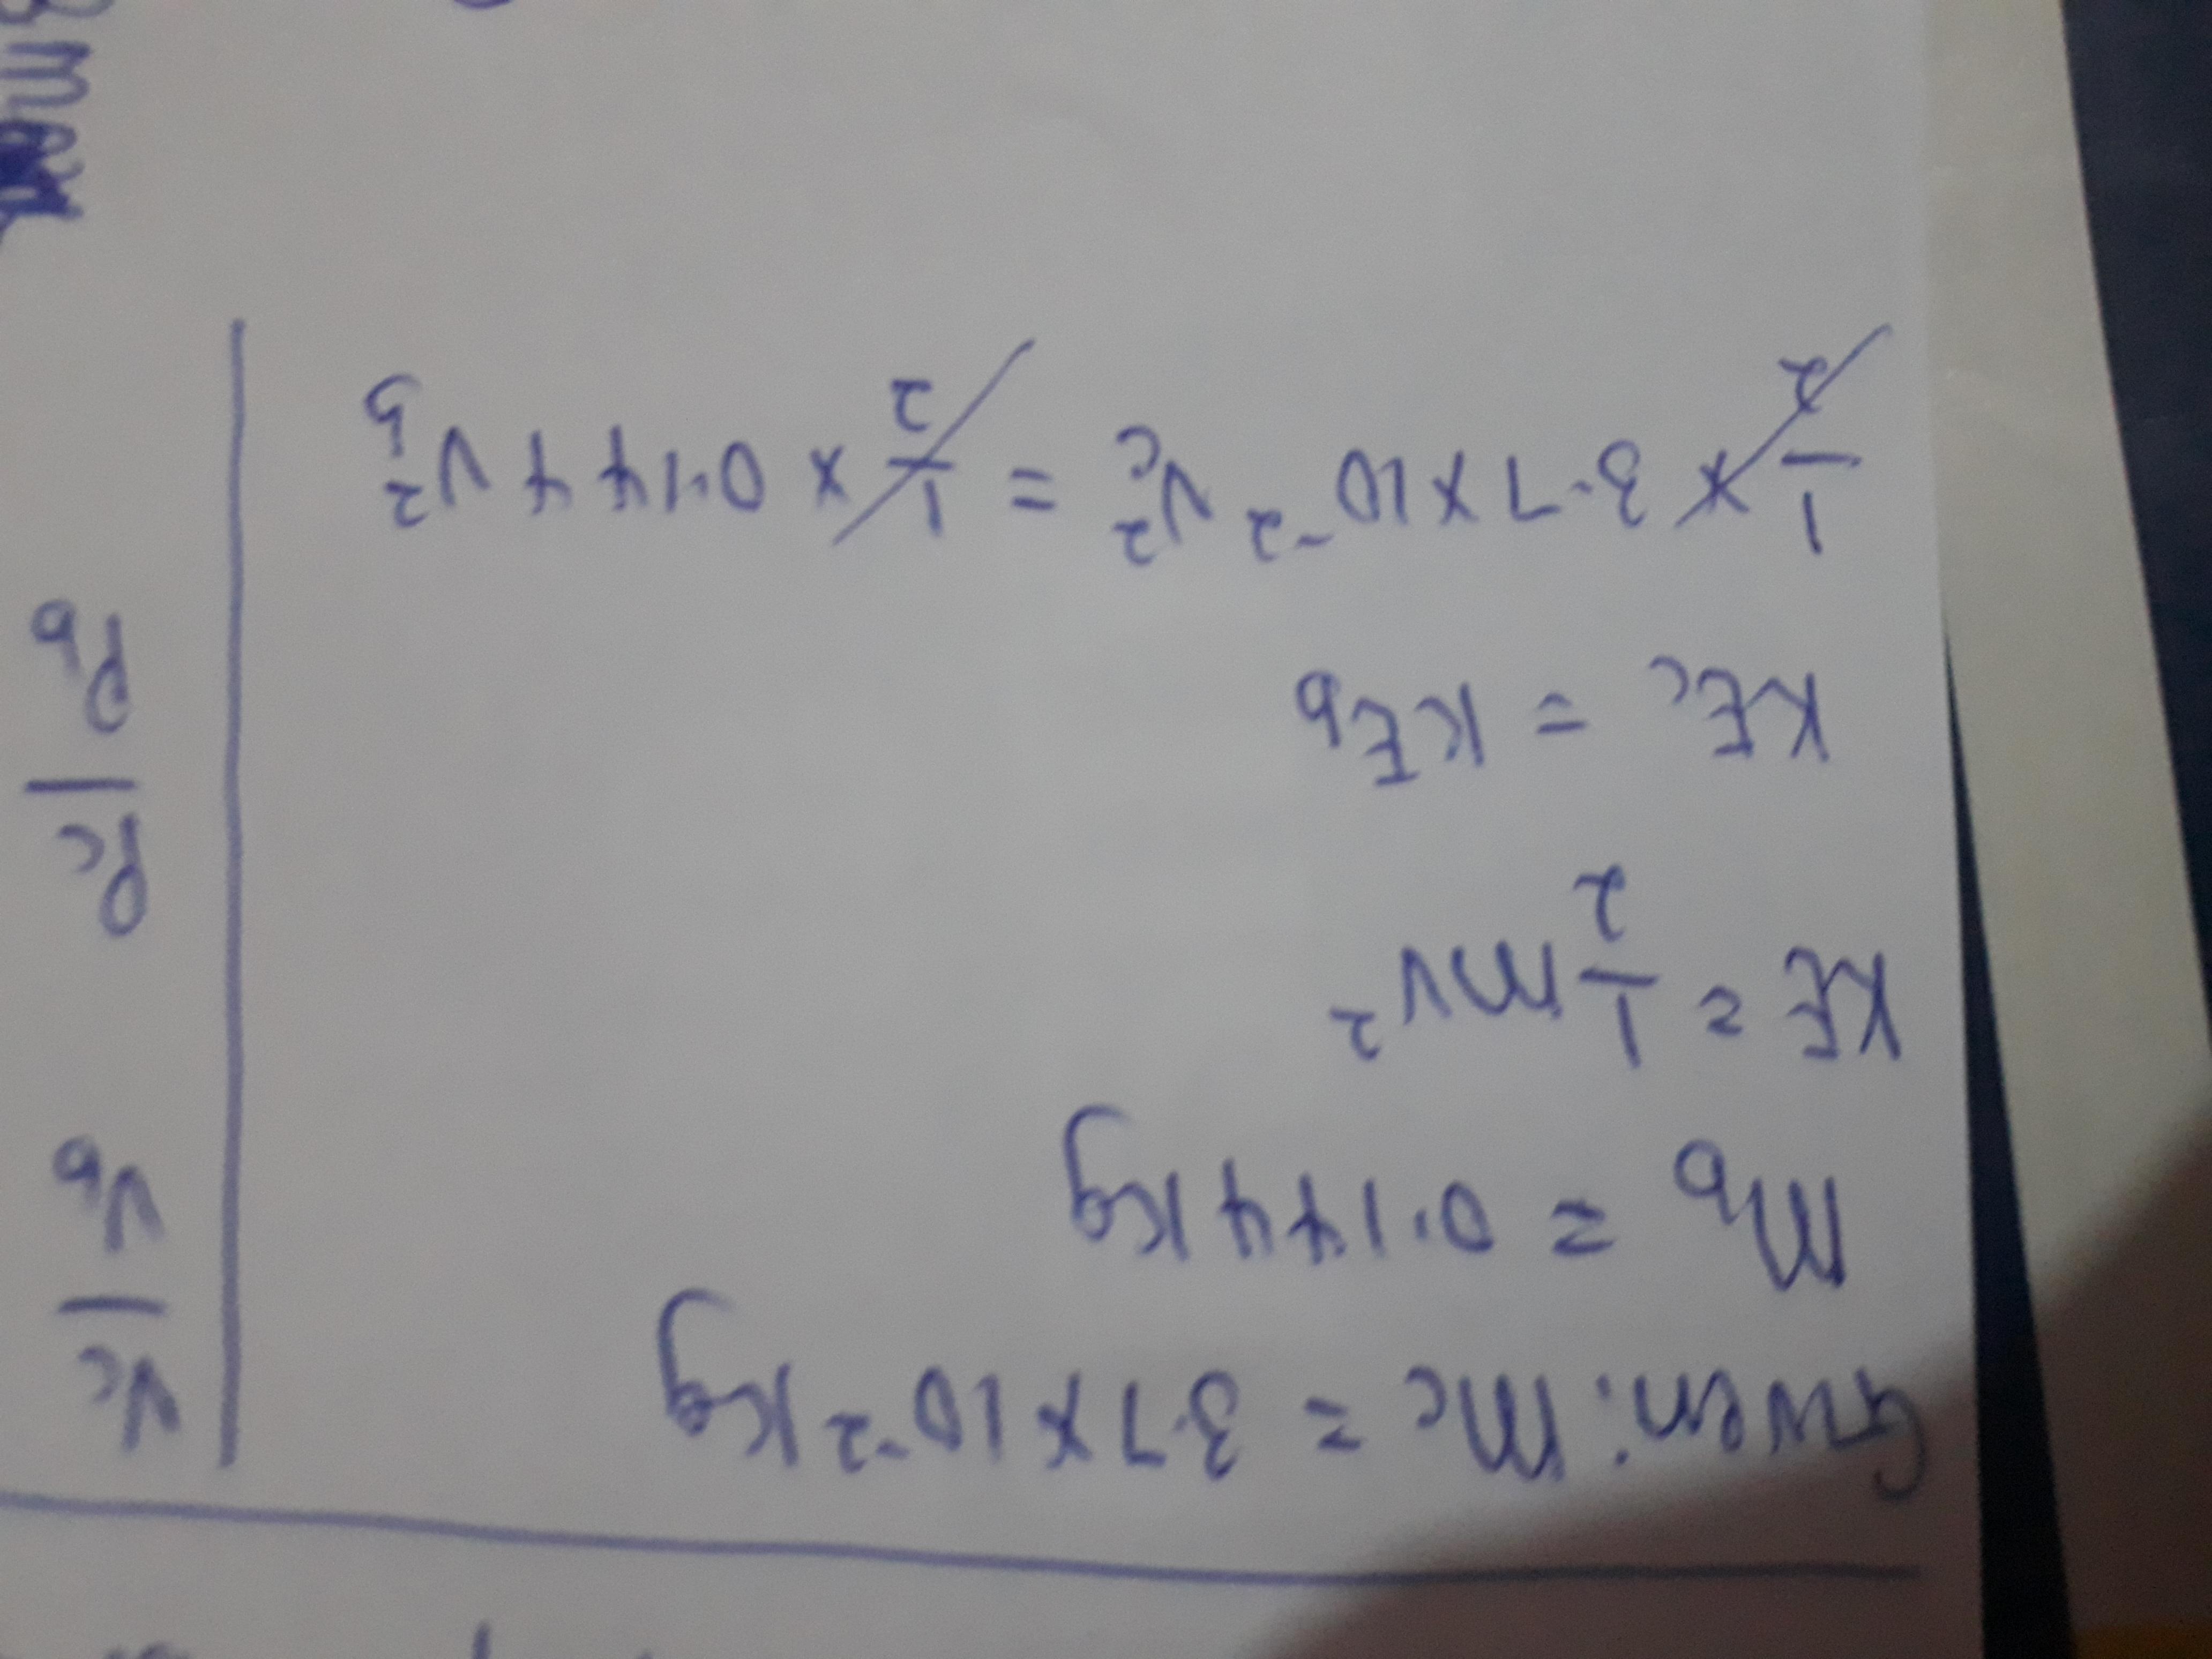 Given: Mc = 3.7 x 10⁻² Kg
Mb = 0.144 Kg
KE = 1/2 mv²
KEc = KEb
1/2 x 3.7 x 10⁻² Vc² = 1/2 x 0.144 Vb²
Vc/Vb
Pc/Pb